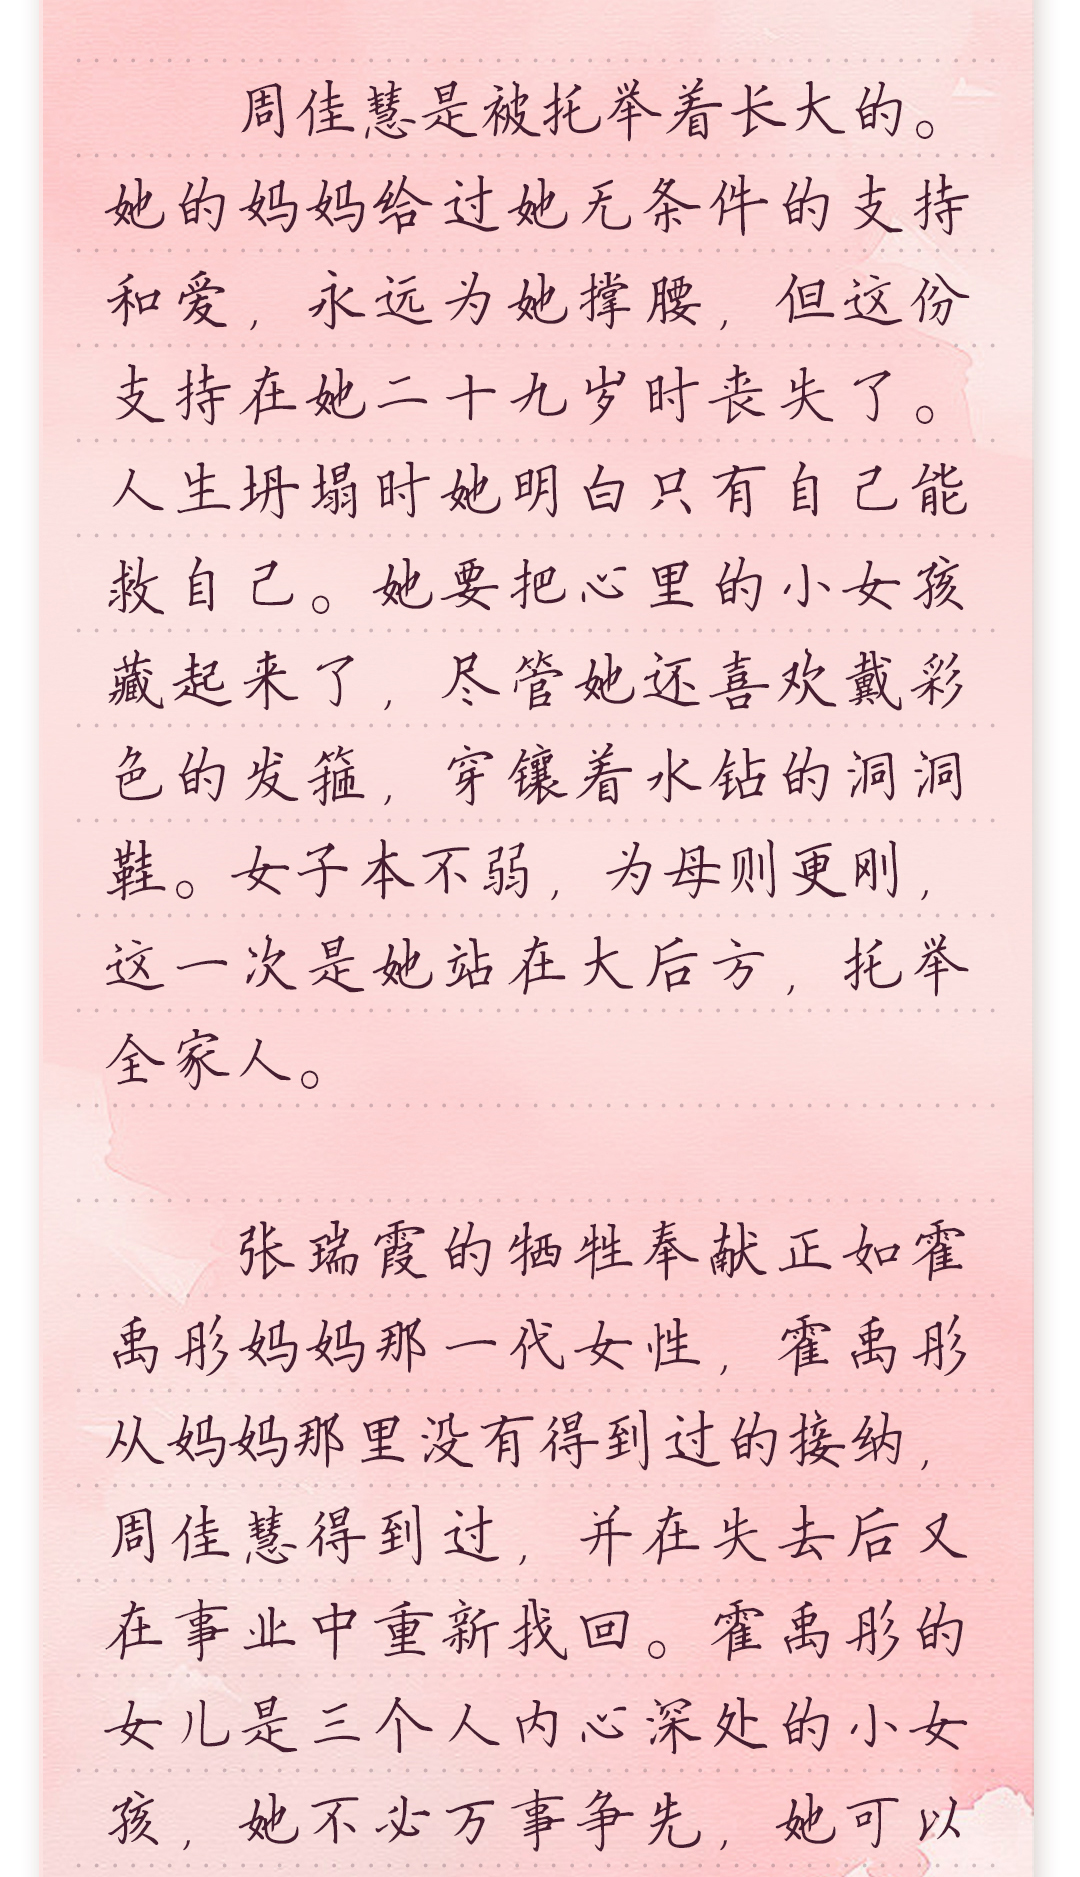 周佳慧是被托举着长大的。
她的妈妈给过她无条件的支持
和爱，永远为她撑腰，但这份
支持在她二十九岁时丧失了。
人生坍塌时她明白只有自己能
救自己。她要把心里的小女孩
藏起来了，尽管她还喜欢戴彩
色的发箍，穿镶着水钻的洞洞
鞋。女子本不弱，为母则更刚，
这一次是她站在大后方，托举
全家人。
张瑞霞的牺牲奉献正如霍
禹彤妈妈那一代女性，霍禹彤
从妈妈那里没有得到过的接纳，
周佳慧得到过，并在失去后又
在事业中重新找回。霍禹彤的
女儿是三个人内心深处的小女
孩，她不必万事争先，她可以